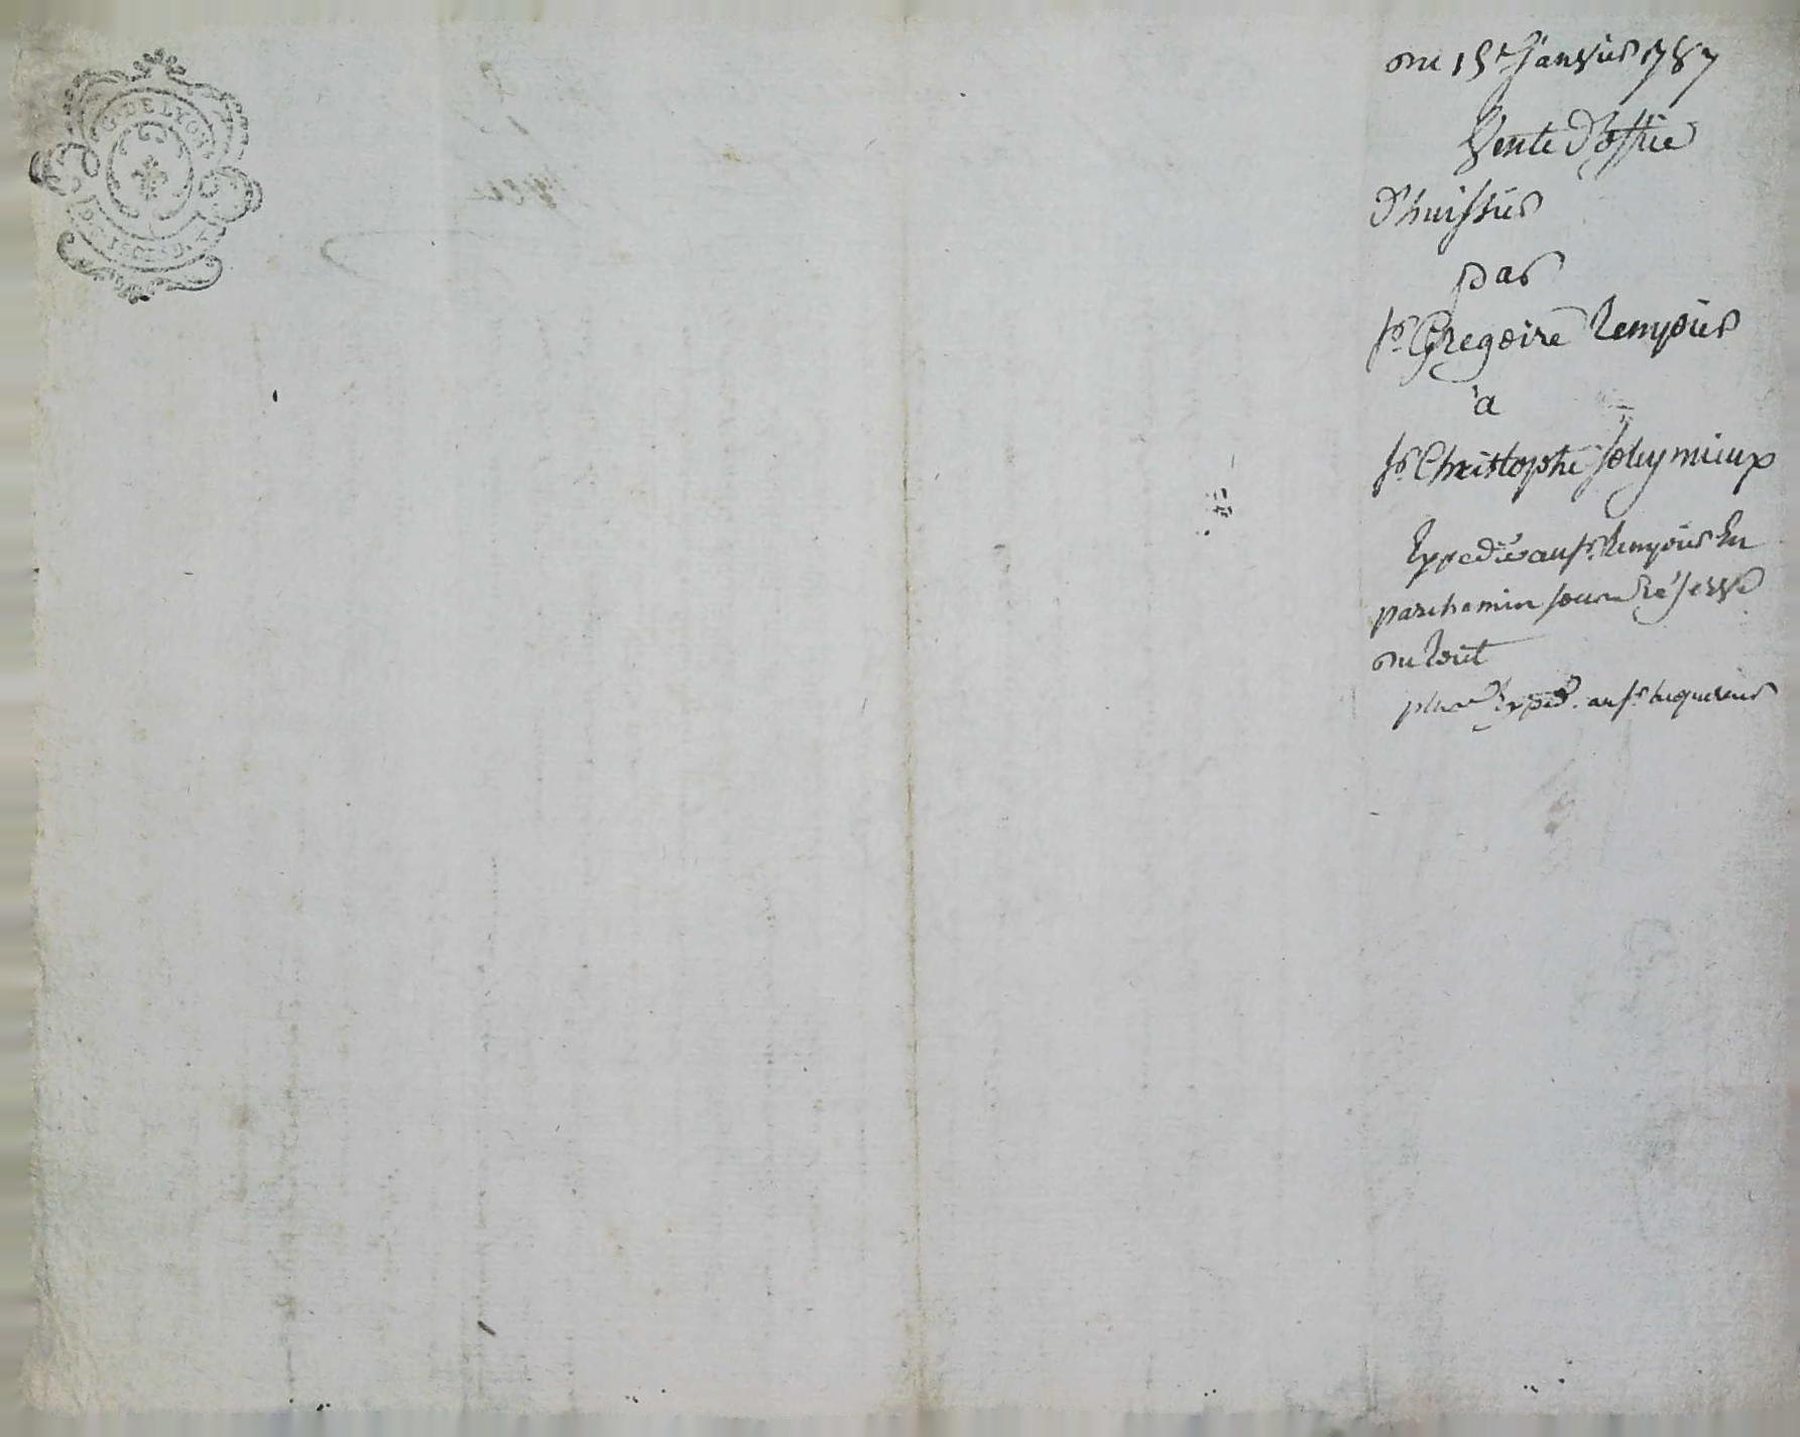 G. DE LYON
du 15e. Janvier 1787
Vente d'office
d'huissier
par
sr. Gregoire Tempier
à
sr. Christophe soleymieux
Expedié au sr. Tempier En
parchemin sous Réserve
du Rôle
plus Exped. au sr. acquereur